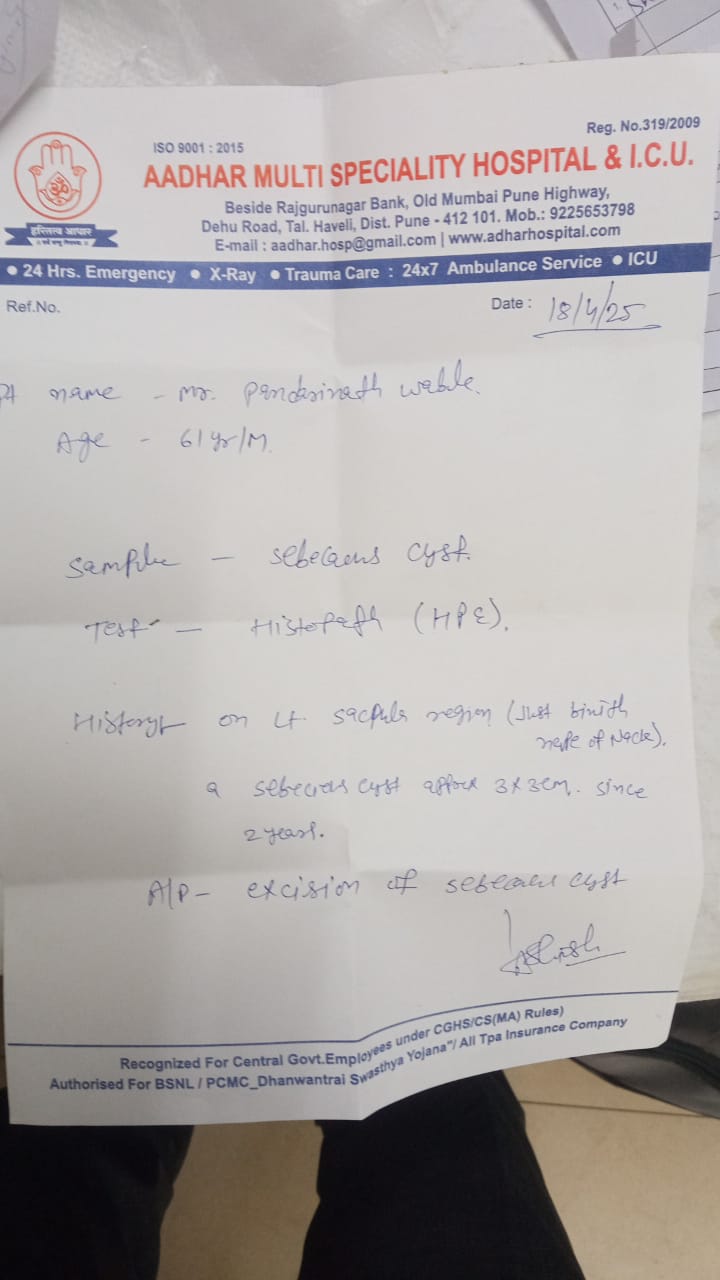 Reg. No.319/2009
ISO 9001 : 2015
AADHAR MULTI SPECIALITY HOSPITAL & I.C.U.
Beside Rajgurunagar Bank, Old Mumbai Pune Highway,
Dehu Road, Tal. Haveli, Dist. Pune - 412 101. Mob.: 9225653798
E-mail : aadhar.hosp@gmail.com | www.adharhospital.com
हरितत्व आधार
• 24 Hrs. Emergency • X-Ray • Trauma Care : 24x7 Ambulance Service • ICU
Ref.No.
Date : 18/4/25
Pt name - Mr. Pandarinath wable.
Age - 61 yr/M.
Sample - sebecaus cyst.
Test - Histopath (HPE).
History on Lt. sacpula region (Just binith
nape of Nack).
a sebecaus cyst approx 3x3cm. since
2 years.
A/P- excision of sebecaus cyst
Recognized For Central Govt.Employees under CGHS/CS(MA) Rules)
Authorised For BSNL / PCMC_Dhanwantrai Swasthya Yojana"/ All Tpa Insurance Company